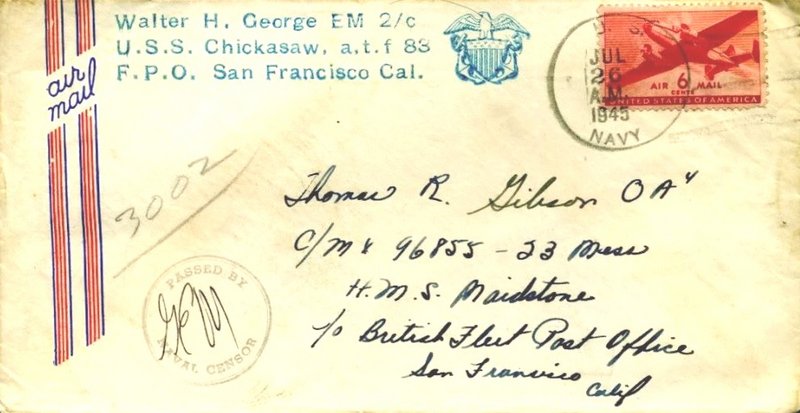 Walter H. George EM 2/c
U.S.S. Chickasaw, a.t.f 83
F.P.O. San Francisco Cal.
air
mail
U. S.
JUL
26
A.M.
1945
NAVY
AIR 6 MAIL
CENTS
UNITED STATES OF AMERICA
3002
Thomas R. Gibson OA4
C/MX 96855 - 23 Mess
H.M.S. Maidstone
c/o British Fleet Post Office
San Francisco
Calif
PASSED BY
NAVAL CENSOR